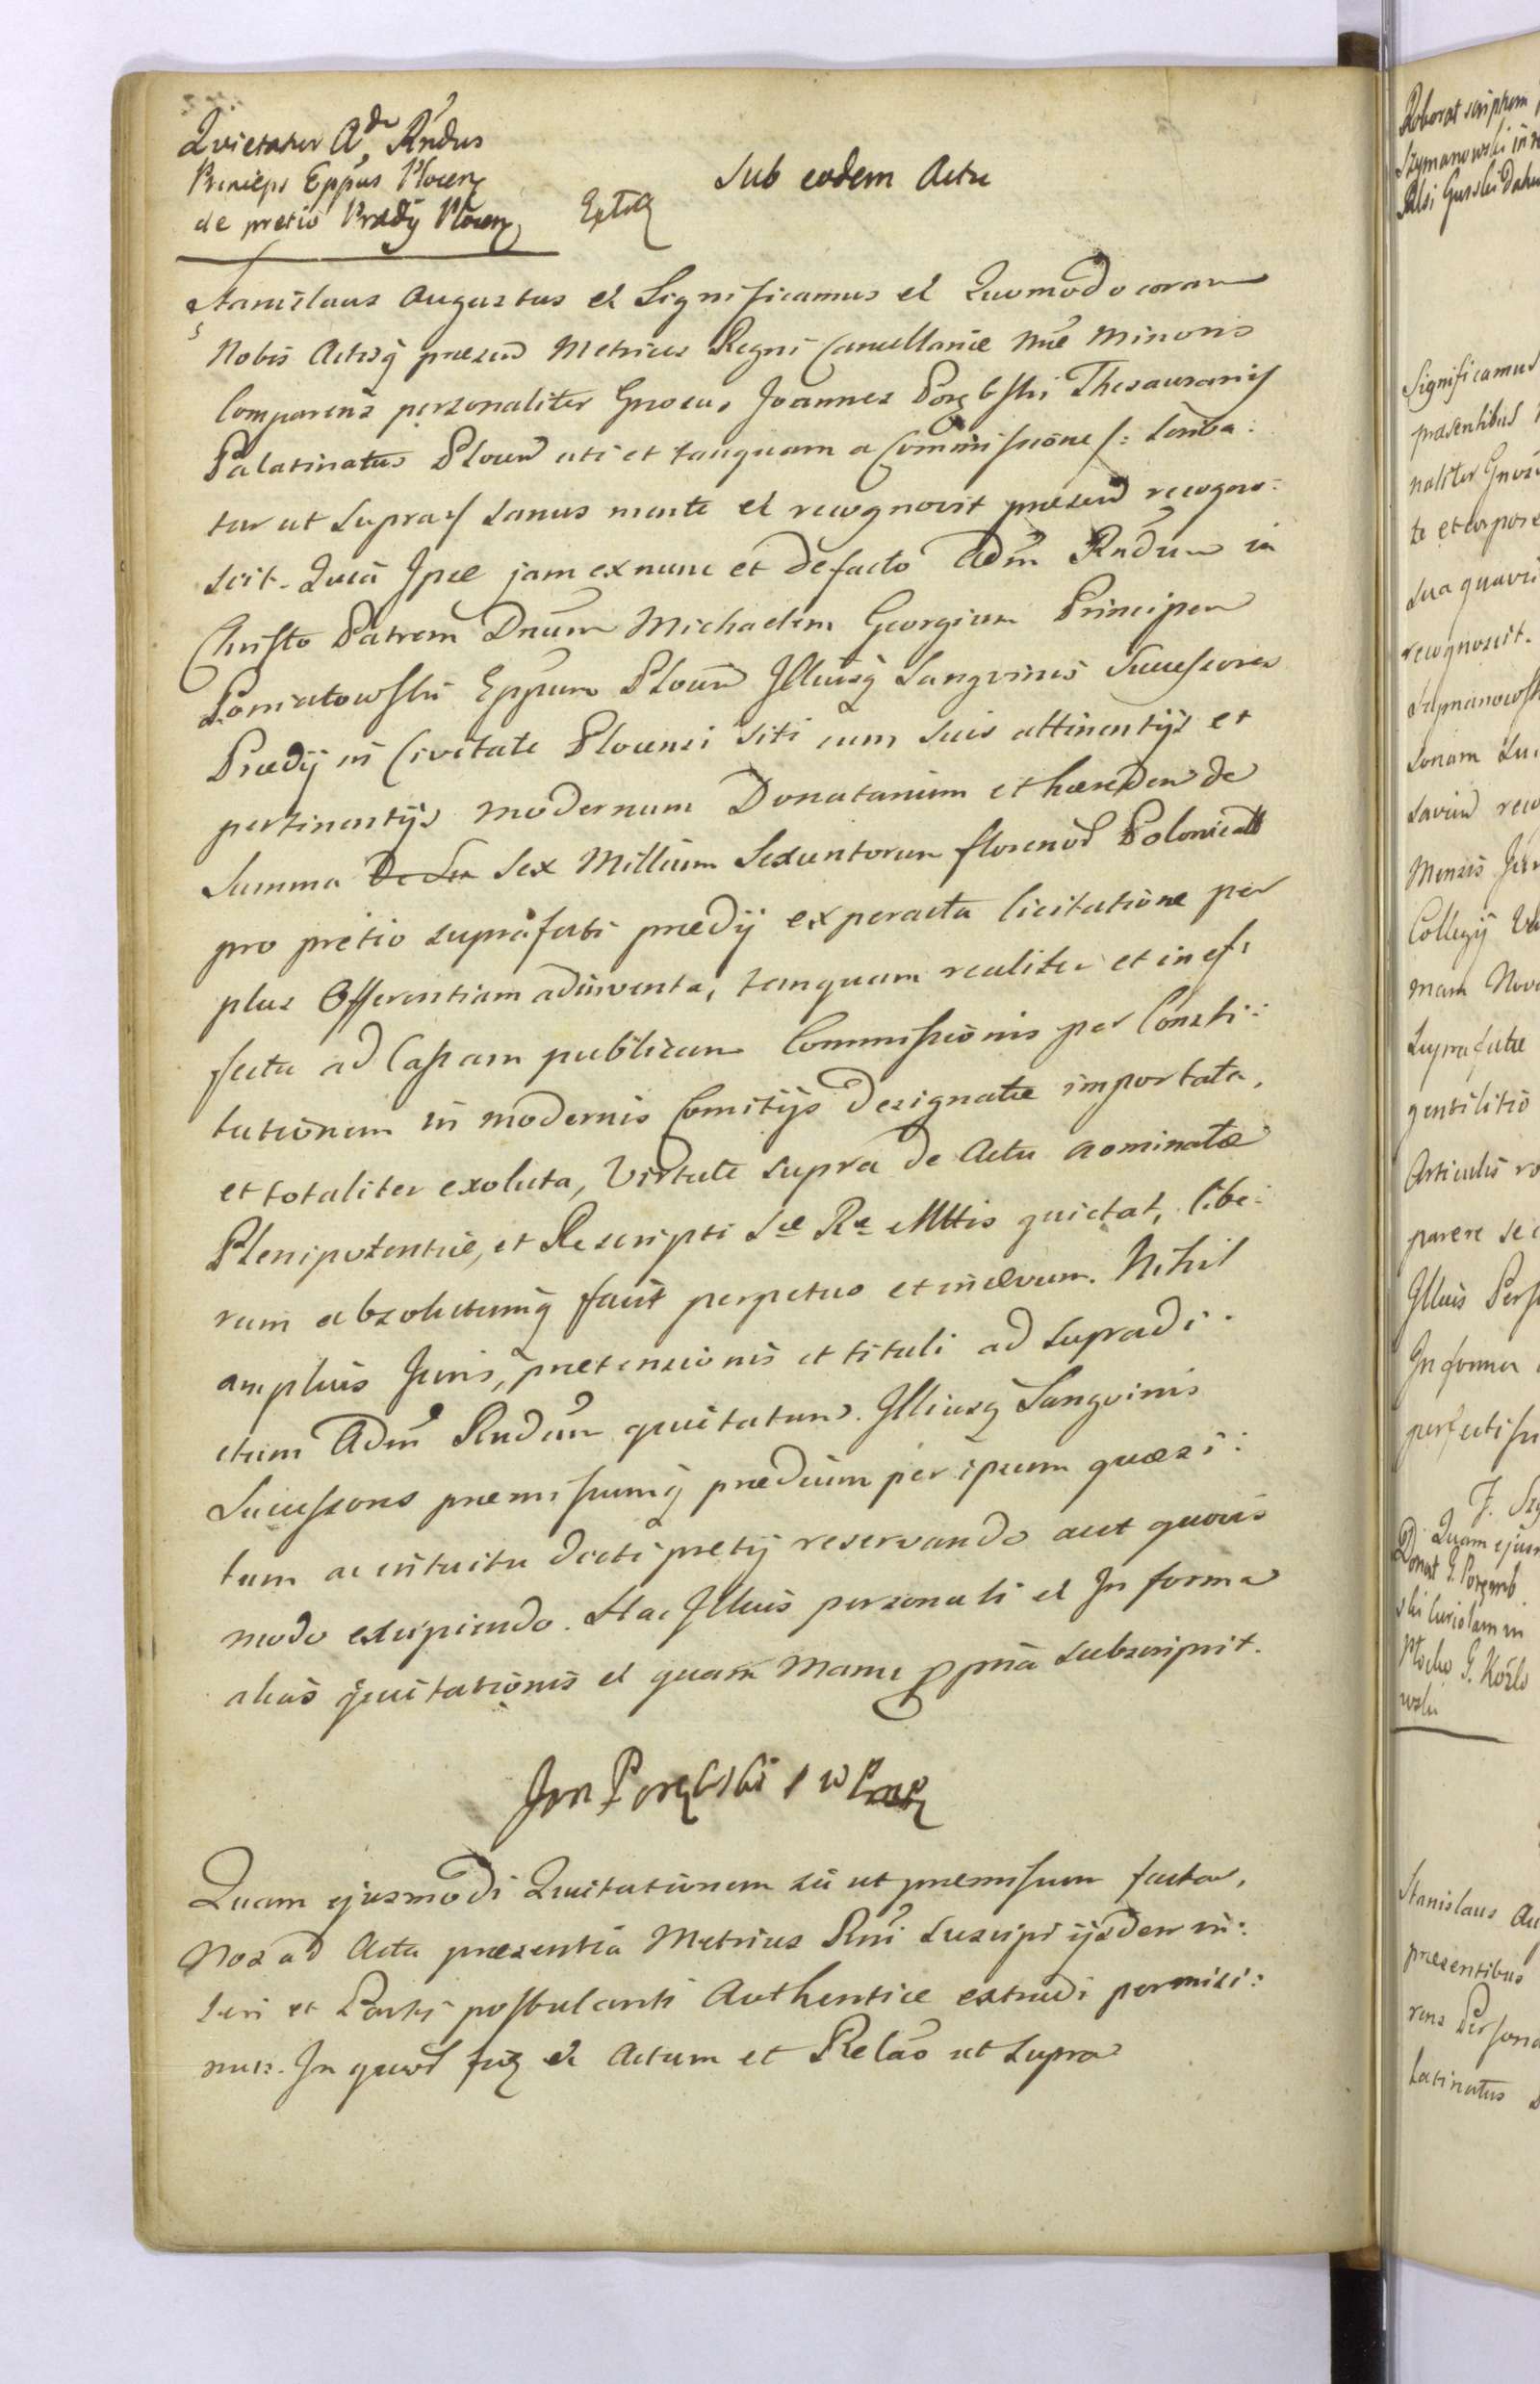 Quietatur Adm Rndus
Princeps Eppus Plocen
de pretio Prædij Plocen
Sub eodem Actu
Stanislaus Augustus et Significamus et Quomodo coram
Nobis Actisq præsen Metrices Regni Cancellariæ Mne Minoris
Comparens personaliter Gnosus Joannes Porębski Thesaurarius
Palatinatus Plocen uti et tanquam a Commissione /: scriba:
tur ut supra :/ sanus mente et recognovit præsen recogno:
scit. Quia Ipse jam ex nunc et de facto Adm Rndum in
Christo Patrem Dnum Michaelem Georgium Principem
Poniatowski Eppum Plocen Illiusq Sangvinis Successores
Prædij in Civitate Plocensi siti cum suis attinentijs et
pertinentijs modernum Donatarium et hæredem de
Summa Sex Millium Sexcentorum florenor Polonicall
pro pretio suprafati prædij ex peracta licitatione per
plus Offerentiam adinventa, tanquam realiter et in ef:
fectu ad Cassam publicam Commissionis per Consti:
tutionem in modernis Comitijs designatæ importata,
et totaliter exoluta, Virtute supra de Actu nominatæ
Plenipotentiæ, et Rescripti Sæ Ræ Mttis quietat, libe:
rum absolutumq facit perpetuo et in ævum. Nihil
amplius Juris, prætensionis et tituli ad supradi:
ctum Adm Rndum quietatum. Illiusq Sangvinis
Successores præmissumq prædium per ipsum quæsi:
tum ac intuitu dicti pretij reservando aut quovis
modo excipiendo. Hac Illius personali et In forma
alias quietationis et quam Manu ppria subscripsit.
Jan Porębski
Quam ejusmodi Quietationem sic ut præmissum factam,
Nos ad Acta præsentia Metrices Rni suscipi ijsdem in:
seri et Parti postulanti Authentice extradi permisi:
mus. In quor fiq et Actum et Relao ut supra
Roborat scriptum
Szymanowski in
Significamus
præsentibus
naliter Gnos
te et corpore
sua quavis
recognoscit.
Szymanowsk
sonam Su
Mensis
Collegij
mam Nov
Suprafatæ
gentilitio
Articulis ro
parere se
Illius Pers
In forma
perfectiss
J. Szy
Quam ejus
Donat G. Poremb
ski Curiolam in
Płocko G. Kozło
wski
Stanislaus Au
præsentibus
rens Persona
latinatus